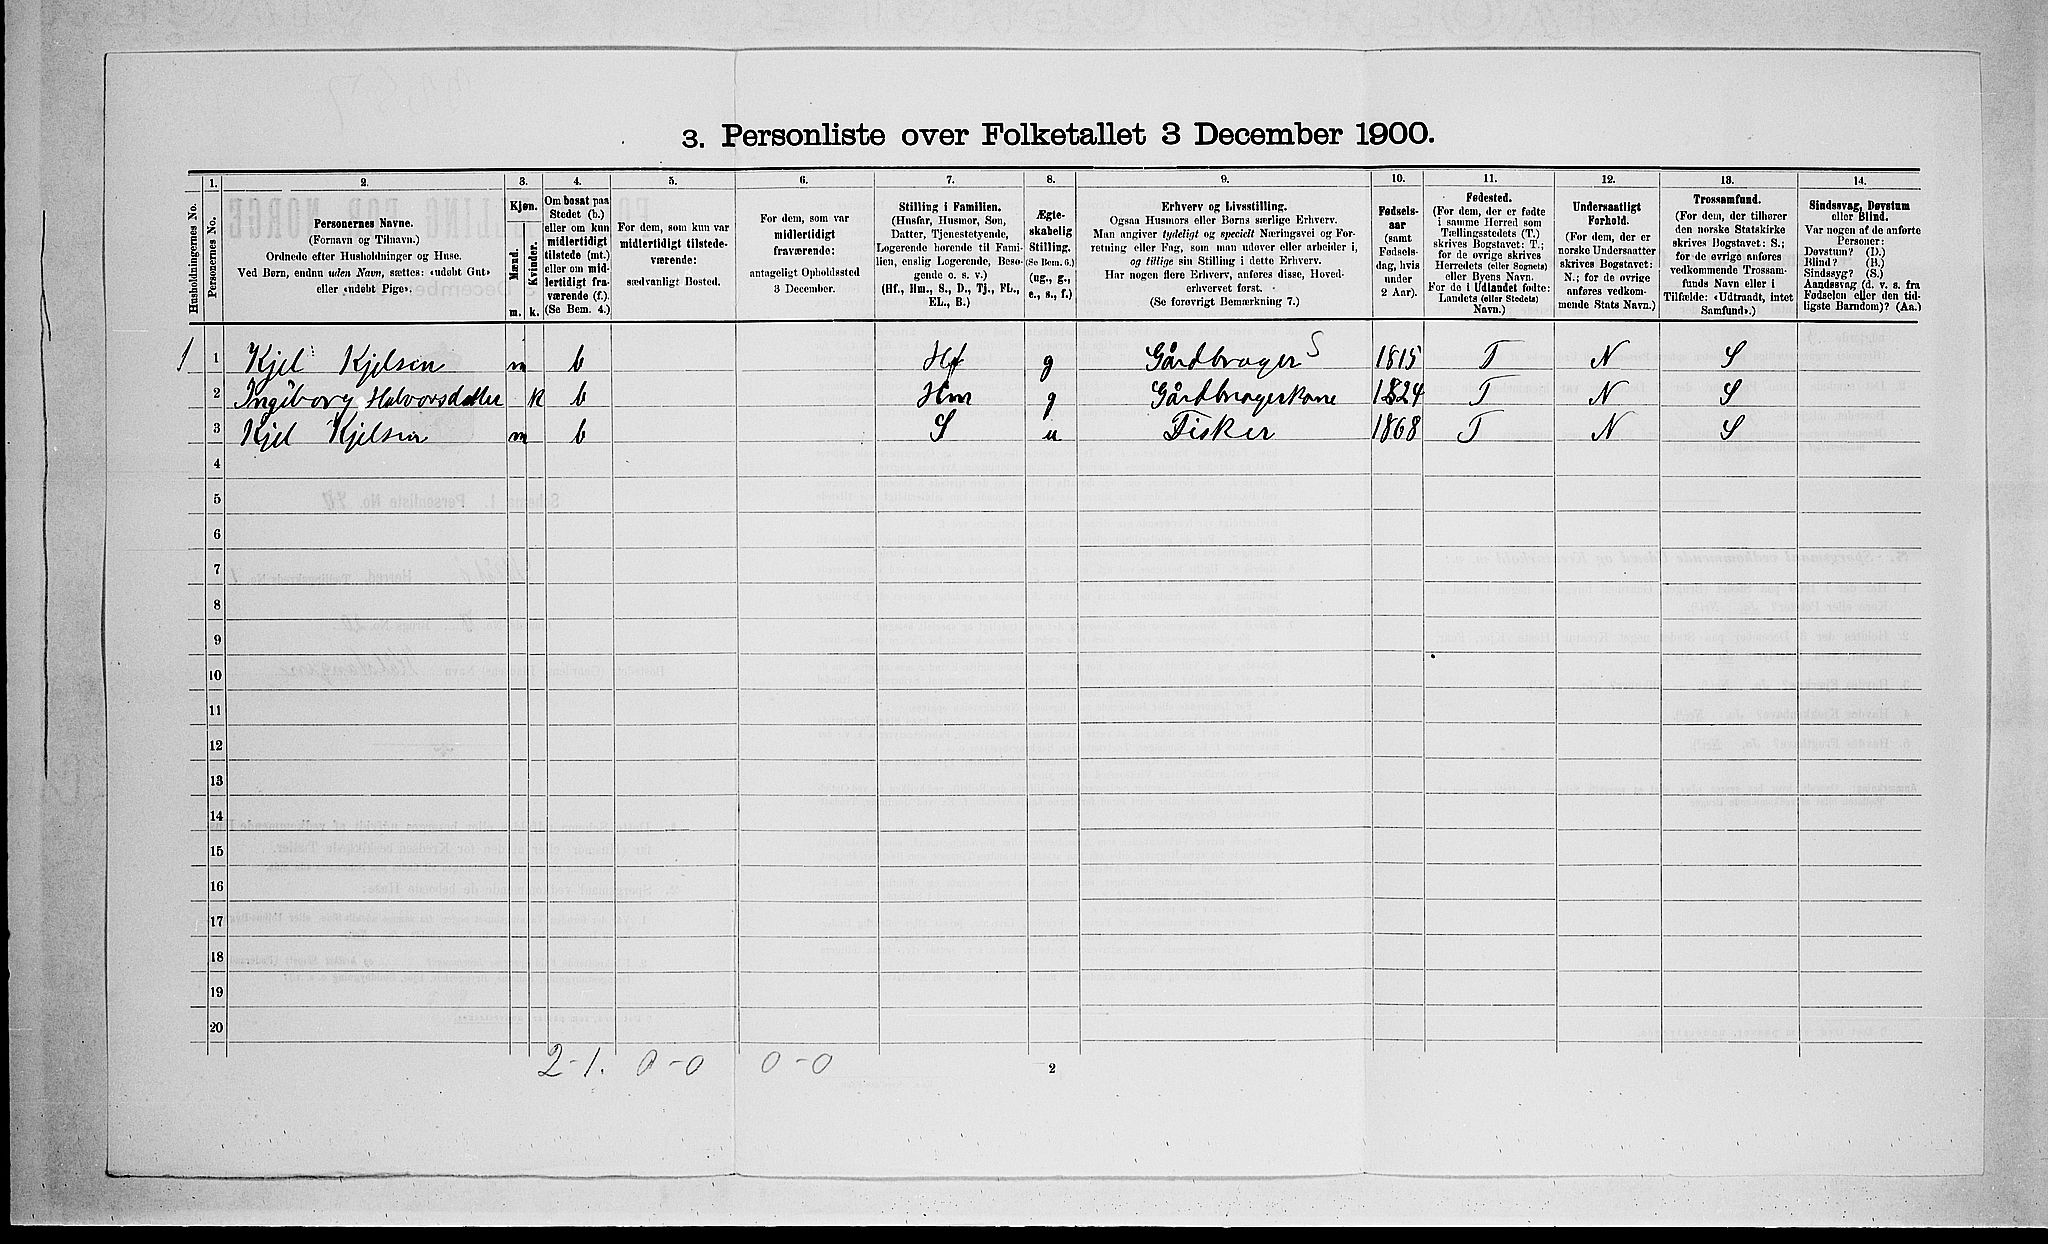 3. Personliste over Folketallet 3 December 1900.
Husholdningernes No.
1.
Personernes No.
2.
Personernes Navne.
(Fornavn og Tilnavn.)
Ordnede efter Husholdninger og Huse.
Ved Børn, endnu uden Navn, sættes: «udøbt Gut»
eller «udøbt Pige».
3.
Kjøn.
Mænd.
Kvinder.
m. k.
4.
Om bosat paa
Stedet (b.)
eller om kun
midlertidigt
tilstede (mt.)
eller om mid-
lertidigt fra-
værende (f.).
(Se Bem. 4.)
5.
For dem, som kun var
midlertidigt tilstede-
værende:
sædvanligt Bosted.
6.
For dem, som var
midlertidigt
fraværende:
antageligt Opholdssted
3 December.
7.
Stilling i Familien.
(Husfar, Husmor, Søn,
Datter, Tjenestetyende,
Logerende hørende til Fami-
lien, enslig Logerende, Besø-
gende o. s. v.)
(Hf., Hm., S., D., Tj., FL.,
EL., B.)
8.
Ægte-
skabelig
Stilling.
(Se Bem. 6.)
(ug., g.,
e., s., f.)
9.
Erhverv og Livsstilling.
Ogsaa Husmors eller Børns særlige Erhverv.
Man angiver tydeligt og specielt Næringsvei og For-
retning eller Fag, som man udøver eller arbeider i,
og tillige sin Stilling i dette Erhverv.
Har nogen flere Erhverv, anføres disse, Hoved-
erhvervet først.
(Se forøvrigt Bemærkning 7.)
10.
Fødsels-
aar
(samt
Fødsels-
dag, hvis
under
2 Aar).
11.
Fødested.
(For dem, der er fødte
i samme Herred som
Tællingsstedets (T.)
skrives Bogstavet: T.;
for de øvrige skrives
Herredets (eller Sognets)
eller Byens Navn.
For de i Udlandet fødte:
Landets (eller Stedets)
Navn.)
12.
Undersaatligt
Forhold.
(For dem, der er
norske Undersaatter
skrives Bogstavet:
N.; for de øvrige
anføres vedkom-
mende Stats Navn.)
13.
Trossamfund.
(For dem, der tilhører
den norske Statskirke
skrives Bogstavet: S.;
for de øvrige anføres
vedkommende Trossam-
funds Navn eller i
Tilfælde: «Udtraadt, intet
Samfund».)
14.
Sindssvag, Døvstum
eller Blind.
Var nogen af de anførte
Personer:
Døvstum? (D.)
Blind? (B.)
Sindssyg? (S.)
Aandssvag (d. v. s. fra
Fødselen eller den tid-
ligste Barndom)? (Aa.)
1 1 Kjel Kjelsen m b Hf g Gårdbruger S 1815 T N S
2 Ingeborg Halvorsdatter k b Hm g Gårdbrugerkone 1824 T N S
3 Kjel Kjelsen m b S u Fisker 1868 T N S
4
5
6
7
8
9
10
11
12
13
14
15
16
17
18
19
20
2-1. 0-0 0-0
2